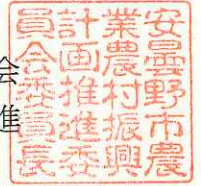 会
進
安曇野市農
業農村振興
計画推進委
員会委員長